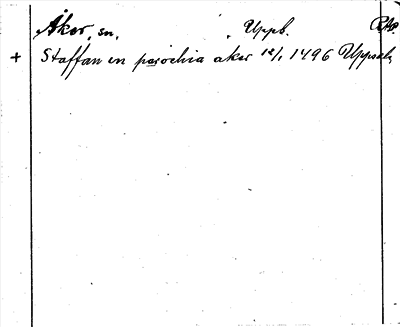 Åker, sn. Uppb. RAp.
+ Staffan en parochia aker 12/1 1496 Uppsala